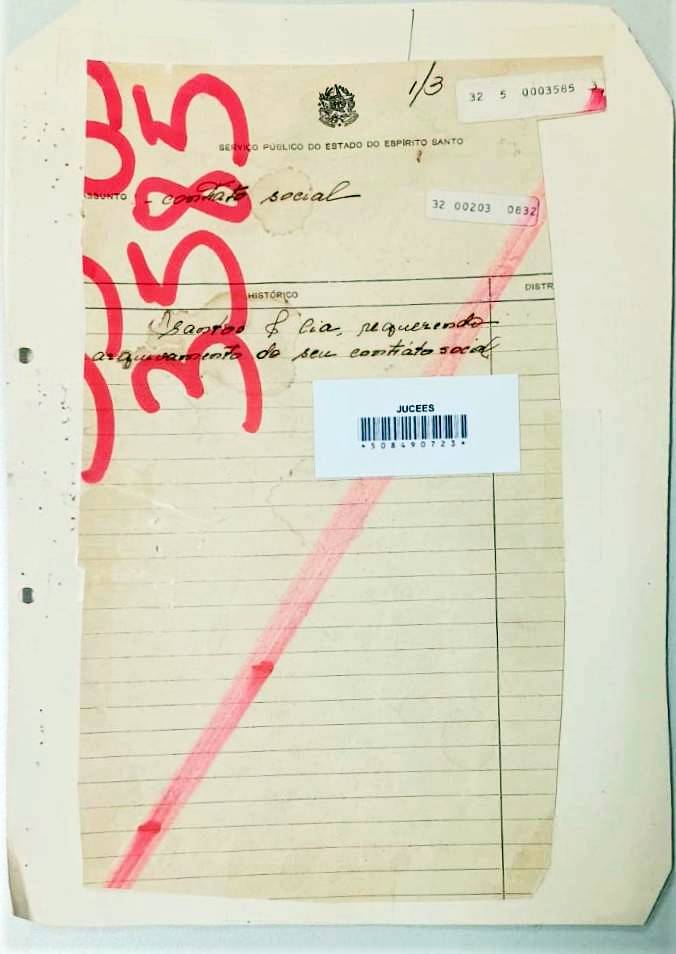 1/3
32 5 0003585 3
SERVIÇO PÚBLICO DO ESTADO DO ESPÍRITO SANTO
ASSUNTO - contráto social
32 00203 0832
HISTÓRICO DISTR
Santos & Cia, requerendo
arquivamento do seu contráto social
JUCEES
*508490723*
3585